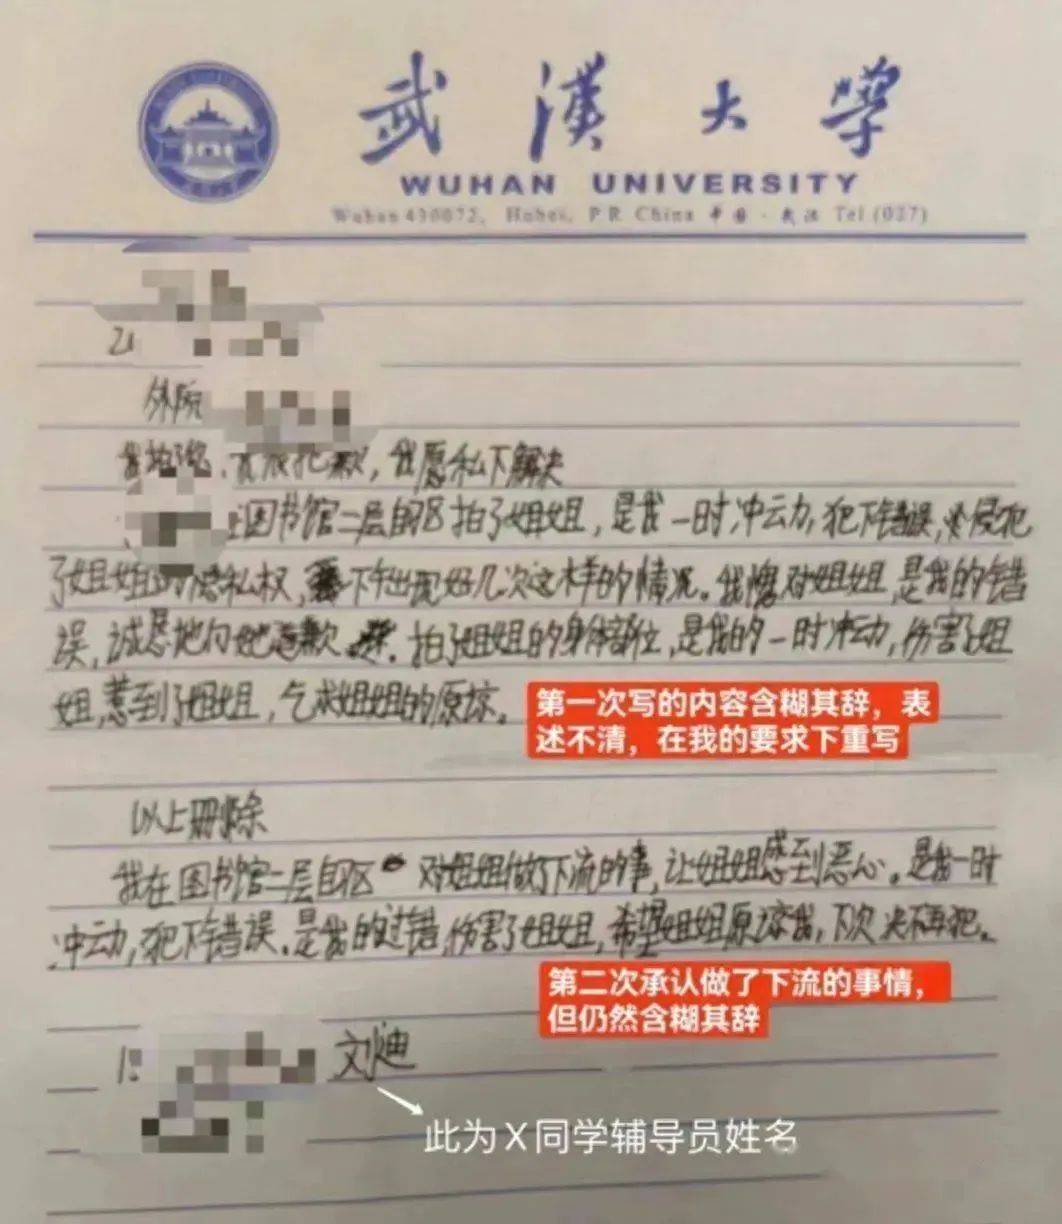 武漢大學
WUHAN UNIVERSITY
Wuhan 430072, Hubei, P R China 中国·武汉 Tel (027)
外院
我愿私下解决
图书馆二层自习区拍了姐姐，是我一时冲动，犯下错误，侵犯
了姐姐的隐私权，下午出现好几次这样的情况。我愧对姐姐，是我的错
误，诚恳地向她道歉 拍了姐姐的身体部位，是我的一时冲动，伤害了姐
姐，惹到了姐姐，乞求姐姐的原谅。
第一次写的内容含糊其辞，表
述不清，在我的要求下重写
以上删除
我在图书馆二层自习区 对姐姐做了下流的事，让姐姐感到恶心。是我一时
冲动，犯下错误，是我的过错，伤害了姐姐，希望姐姐原谅我，下次决不再犯。
第二次承认做了下流的事情，
但仍然含糊其辞
此为X同学辅导员姓名